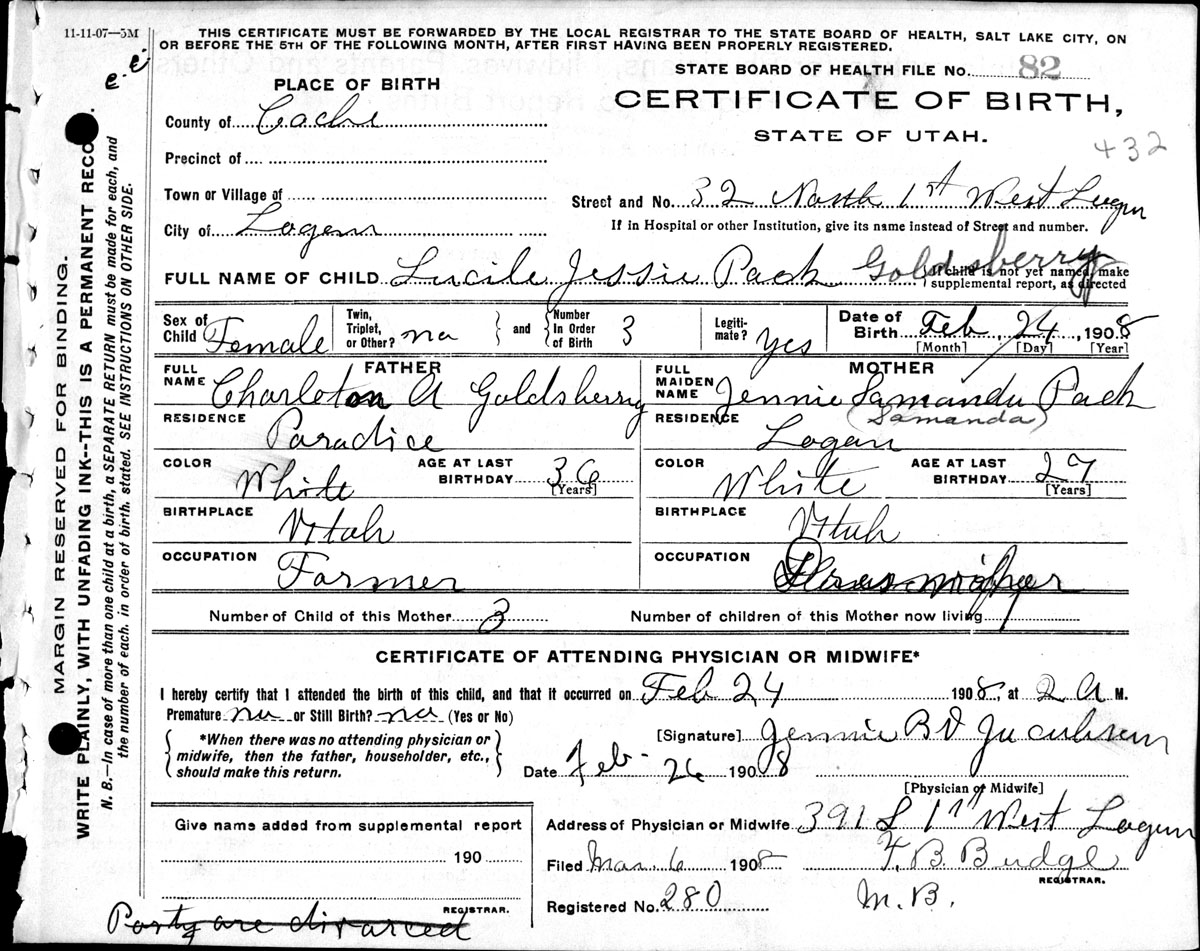 11-11-07—5M
THIS CERTIFICATE MUST BE FORWARDED BY THE LOCAL REGISTRAR TO THE STATE BOARD OF HEALTH, SALT LAKE CITY, ON
OR BEFORE THE 5TH OF THE FOLLOWING MONTH, AFTER FIRST HAVING BEEN PROPERLY REGISTERED.
STATE BOARD OF HEALTH FILE NO. 82
CERTIFICATE OF BIRTH,
STATE OF UTAH.
432
PLACE OF BIRTH
County of Cache
Precinct of
Town or Village of
City of Logan
Street and No. 32 North 1st West Logan
If in Hospital or other Institution, give its name instead of Street and number.
FULL NAME OF CHILD Lucile Jessie Pack Goldsberry
If child is not yet named, make
supplemental report, as directed
Sex of Child Female
Twin, Triplet, or Other? no
and Number In Order of Birth 3
Legiti- mate? yes
Date of Birth Feb 24, 1908
[Month] [Day] [Year]
FATHER
FULL NAME Charleton A Goldsberry
RESIDENCE Paradice
COLOR White AGE AT LAST BIRTHDAY 36
[Years]
BIRTHPLACE Utah
OCCUPATION Farmer
MOTHER
FULL MAIDEN NAME Jennie Samanda Pack
(Samanda)
RESIDENCE Logan
COLOR White AGE AT LAST BIRTHDAY 27
[Years]
BIRTHPLACE Utah
OCCUPATION
Number of Child of this Mother 3 Number of children of this Mother now living
CERTIFICATE OF ATTENDING PHYSICIAN OR MIDWIFE*
I hereby certify that I attended the birth of this child, and that it occurred on Feb 24 1908, at 2 A M.
Premature no or Still Birth? no (Yes or No)
*When there was no attending physician or
midwife, then the father, householder, etc.,
should make this return.
[Signature] Jennie B
Date Feb- 26 1908
[Physician or Midwife]
Give name added from supplemental report
190
REGISTRAR.
Address of Physician or Midwife 391 S 1st West Logan
Filed Mar. 6 1908 F. B. Budge
REGISTRAR.
Registered No. 280 M.B.
Party are divorced
MARGIN RESERVED FOR BINDING.
WRITE PLAINLY, WITH UNFADING INK--THIS IS A PERMANENT RECORD.
N. B.—In case of more than one child at a birth, a SEPARATE RETURN must be made for each, and
the number of each, in order of birth, stated. SEE INSTRUCTIONS ON OTHER SIDE.